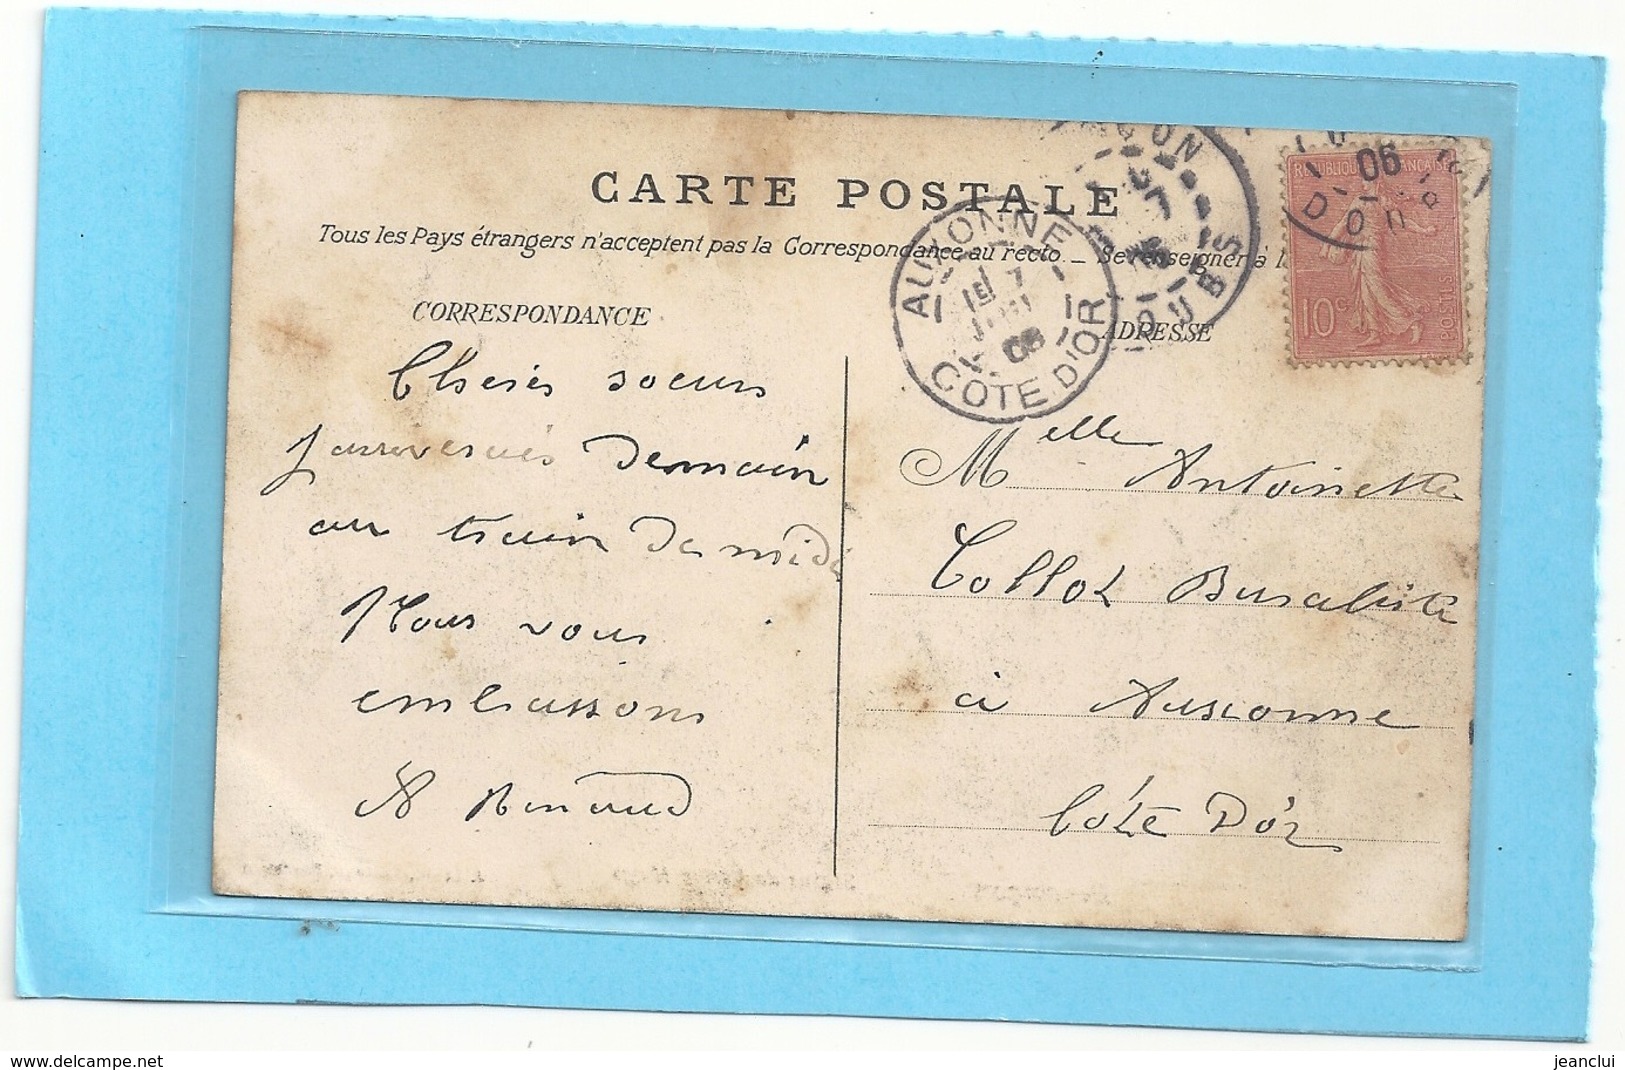 CARTE POSTALE
Tous les Pays étrangers n'acceptent pas la Correspondance au recto _ Se renseigner à l
CORRESPONDANCE
ADRESSE
Chères soeurs
J'arriverais demain
au train de midi
Nous vous
embrassons
Renaud
Melle Antoinette
Collot Buraliste
à Auxonne
Côte D'or
AUXONNE
7
06
COTE D'OR
DOUBS
06
DOUBS
REPUBLIQUE FRANÇAISE
10c
POSTES
www.delcampe.net
jeanclui